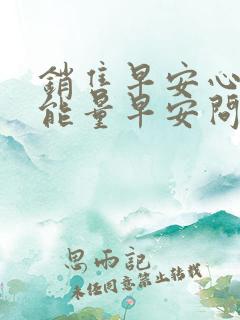 銷售早安心
能量早安問
思雨記
未經同意禁止轉載